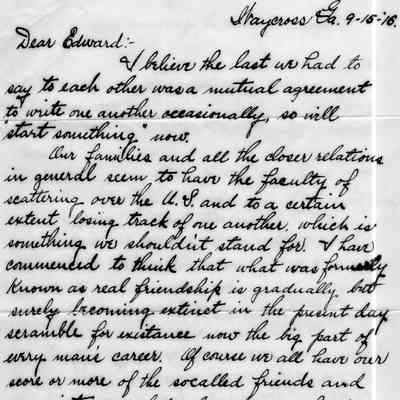 Waycross Ga. 9-15-'16.
Dear Edward:-
I believe the last we had to
say to each other was a mutual agreement
to write one another occasionally, so will
"start something" now.
Our families and all the closer relations
in general seem to have the faculty of
scattering over the U.S. and to a certain
extent losing track of one another, which is
something we shouldn't stand for. I have
commenced to think that what was formerly
known as real friendship is gradually but
surely becoming extinct in the present day
scramble for existance now the big part of
every man's career. Of course we all have our
score or more of the socalled friends and